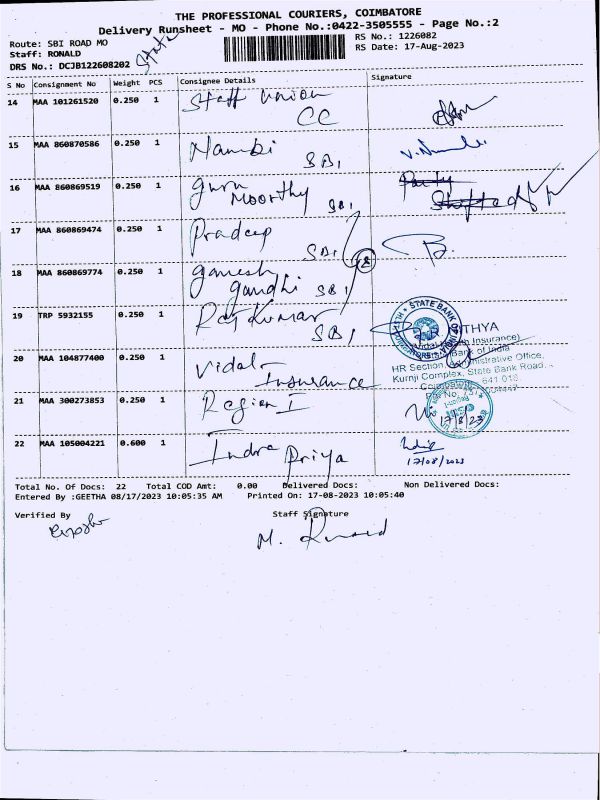 THE PROFESSIONAL COURIERS, COIMBATORE
Delivery Runsheet - MO - Phone No.:0422-3505555 - Page No.:2
Route: SBI ROAD MO
RS No.: 1226082
Staff: RONALD
RS Date: 17-Aug-2023
DRS No.: DCJB122608202
State
S No Consignment No Weight PCS Consignee Details Signature
14 MAA 101261520 0.250 1 Staff Union
CC
15 MAA 860870586 0.250 1 Nambi SBI
16 MAA 860869519 0.250 1 Guru Party
Moorthy SBI Shifted
17 MAA 860869474 0.250 1 Pradeep
SBI
18 MAA 860869774 0.250 1 Ganesh
Gandhi SBI
19 TRP 5932155 0.250 1 Raj Kumar
SBI
STATE BANK OF INDIA
NITHYA
(Vidal Health Insurance)
State Bank of India
20 MAA 104877400 0.250 1 Vidal
Insurance
HR Section, Administrative Office,
Kurnji Complex, State Bank Road,
Coimbatore 641 018
21 MAA 300273853 0.250 1 Region I
17/8/23
22 MAA 105004221 0.600 1 Indra Priya
17/08/2023
Total No. Of Docs: 22 Total COD Amt: 0.00 Delivered Docs: Non Delivered Docs:
Entered By :GEETHA 08/17/2023 10:05:35 AM Printed On: 17-08-2023 10:05:40
Verified By Staff Signature